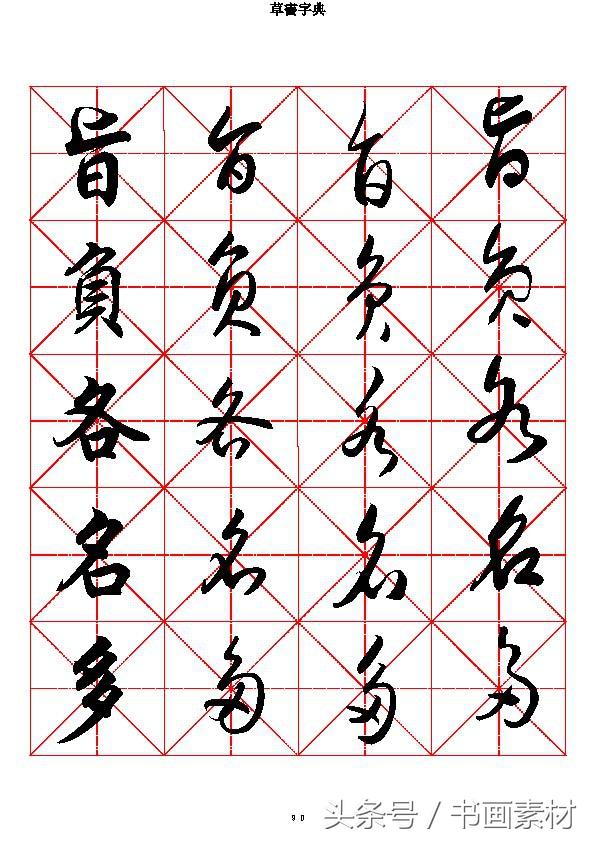 草書字典
旨 旨 旨 旨
負 負 負 負
各 各 各 各
名 名 名 名
多 多 多 多
90
头条号 / 书画素材